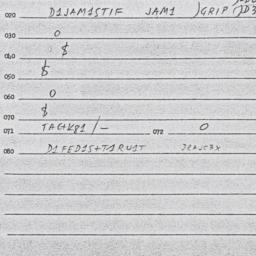 020 D1JAM1STIF JAM1 )GRIP
030 0
040 $
050 $
060 0
070 $
071 TAG+K81 /- 072 0
080 D1FED1S+TARU1T